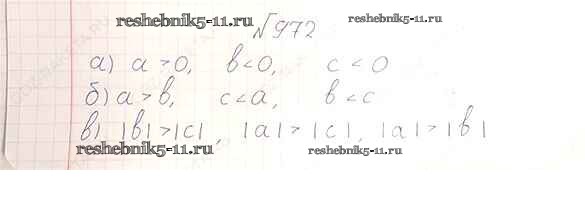 reshebnik5-11.ru reshebnik5-11.ru
№972
а) a > 0, b < 0, c < 0
б) a > b, c < a, b < c
в) |b| > |c|, |a| > |c|, |a| > |b|
reshebnik5-11.ru reshebnik5-11.ru